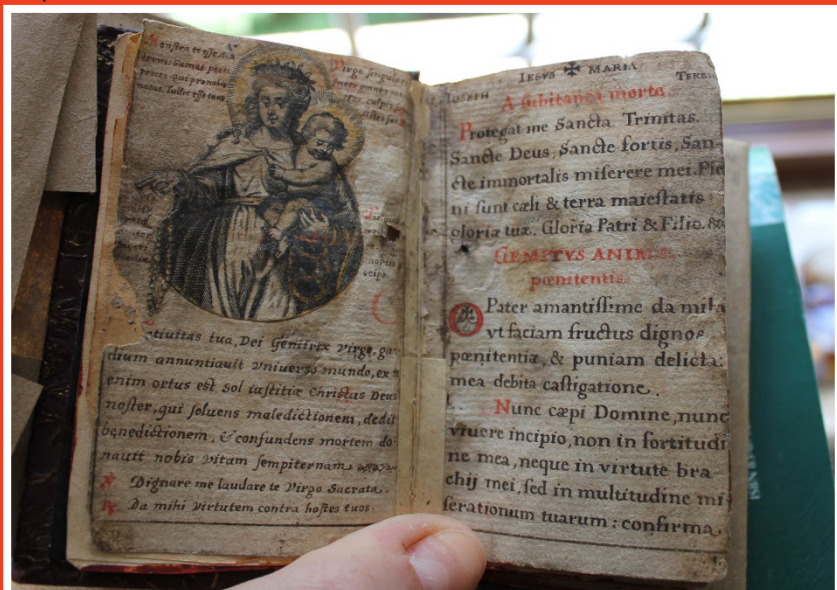 Monstra te esse Ma
trem: Sumat per te
preces qui pro nobis
natus. Tulit esse tuus
Virgo singular
Inter omnes mi
tivitas tua, Dei Genitrix Virgo, gau
dium annuntiauit Vniuerso mundo, ex te
enim ortus est Sol iustitiæ Christus Deus
noster, qui soluens maledictionem, dedit
benedictionem, & confundens mortem do
nauit nobis vitam sempiternam
℣ Dignare me laudare te Virgo Sacrata.
℟ Da mihi Virtutem contra hostes tuos.
IOSEPH IESVS ✠ MARIA TERES
A subitanea morte
Protegat me Sancta Trinitas.
Sancte Deus, Sancte fortis, San-
cte immortalis miserere mei. Ple
ni sunt cæli & terra maiestatis
gloriæ tuæ. Gloria Patri & Filio. &c
GEMITVS ANIMÆ
pœnitentis.
O Pater amantissime da mihi
vt faciam fructus dignos
pœnitentiæ, & puniam delicta
mea debita castigatione.
Nunc cæpi Domine, nunc
viuere incipio, non in fortitudi
ne mea, neque in virtute bra
chij mei, sed in multitudine mi
serationum tuarum : confirma